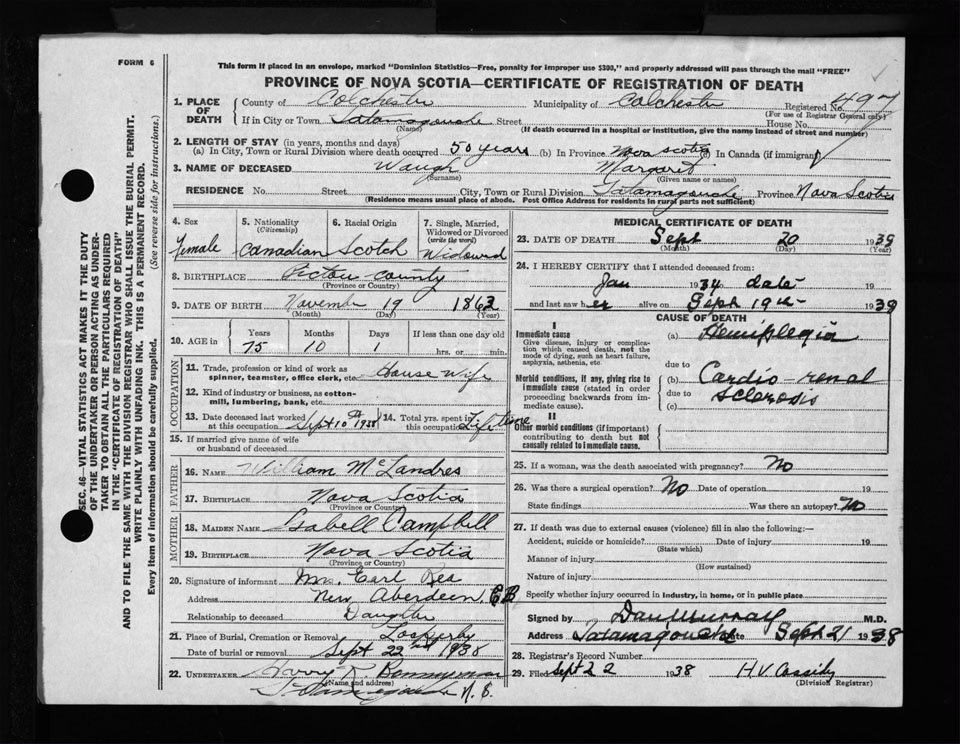 FORM 6
This form if placed in an envelope, marked "Dominion Statistics—Free, penalty for improper use $300," and properly addressed will pass through the mail "FREE"
PROVINCE OF NOVA SCOTIA—CERTIFICATE OF REGISTRATION OF DEATH
SEC. 46—VITAL STATISTICS ACT MAKES IT THE DUTY
OF THE UNDERTAKER OR PERSON ACTING AS UNDER-
TAKER TO OBTAIN ALL THE PARTICULARS REQUIRED
IN THE "CERTIFICATE OF REGISTRATION OF DEATH"
AND TO FILE THE SAME WITH THE DIVISION REGISTRAR WHO SHALL ISSUE THE BURIAL PERMIT.
WRITE PLAINLY WITH UNFADING INK. THIS IS A PERMANENT RECORD.
Every item of information should be carefully supplied. (See reverse side for instructions.)
1. PLACE OF DEATH County of Colchester Municipality of Colchester Registered No. 497
(For use of Registrar General only)
If in City or Town Tatamagouche Street House No.
(Name) (If death occurred in a hospital or institution, give the name instead of street and number)
2. LENGTH OF STAY (in years, months and days)
(a) In City, Town or Rural Division where death occurred 50 years (b) In Province Nova Scotia (c) In Canada (if immigrant)
3. NAME OF DECEASED Waugh Margaret
(Surname) (Given name or names)
RESIDENCE No. Street City, Town or Rural Division Tatamagouche Province Nova Scotia
(Residence means usual place of abode. Post Office Address for residents in rural parts not sufficient)
4. Sex 5. Nationality (Citizenship) 6. Racial Origin 7. Single, Married, Widowed or Divorced (write the word)
Female Canadian Scotch Widowed
8. BIRTHPLACE Pictou County
(Province or Country)
9. DATE OF BIRTH November 19 1863
(Month) (Day) (Year)
10. AGE in Years Months Days If less than one day old
75 10 1 hrs. or min.
OCCUPATION
11. Trade, profession or kind of work as spinner, teamster, office clerk, etc. House Wife
12. Kind of industry or business, as cotton-mill, lumbering, bank, etc.
13. Date deceased last worked at this occupation Sept 10th 1938 14. Total yrs. spent in this occupation Lifetime
15. If married give name of wife or husband of deceased
FATHER
16. NAME William McLandres
17. BIRTHPLACE Nova Scotia
(Province or Country)
MOTHER
18. MAIDEN NAME Isabell Campbell
19. BIRTHPLACE Nova Scotia
(Province or Country)
20. Signature of informant Mrs. Earl Rea
Address New Aberdeen, C B
Relationship to deceased Daughter
21. Place of Burial, Cremation or Removal Lockerby
Date of burial or removal Sept 22nd 1938
22. UNDERTAKER Harry
(Name and address) Tatamagouche N. S.
MEDICAL CERTIFICATE OF DEATH
23. DATE OF DEATH Sept 20 1939
(Month) (Day)
24. I HEREBY CERTIFY that I attended deceased from:
Jan 1934 date 19
and last saw h er alive on Sept 19th 1939
CAUSE OF DEATH
I
Immediate cause (a) Hemiplegia
Give disease, injury or complication which caused death, not the mode of dying, such as heart failure, asphyxia, asthenia, etc.
due to
Morbid conditions, if any, giving rise to immediate cause (stated in order proceeding backwards from immediate cause).
(b) Cardio-renal
due to sclerosis
(c)
II
Other morbid conditions (if important) contributing to death but not causally related to immediate cause.
25. If a woman, was the death associated with pregnancy? No
26. Was there a surgical operation? No Date of operation 19
State findings Was there an autopsy? No
27. If death was due to external causes (violence) fill in also the following:—
Accident, suicide or homicide? Date of injury 19
(State which)
Manner of injury
(How sustained)
Nature of injury
Specify whether injury occurred in industry, in home, or in public place
Signed by Dan Murray M.D.
Address Tatamagouche Date Sept 21 1938
28. Registrar's Record Number
29. Filed Sept 22 1938 H.V. Cassidy
(Division Registrar)